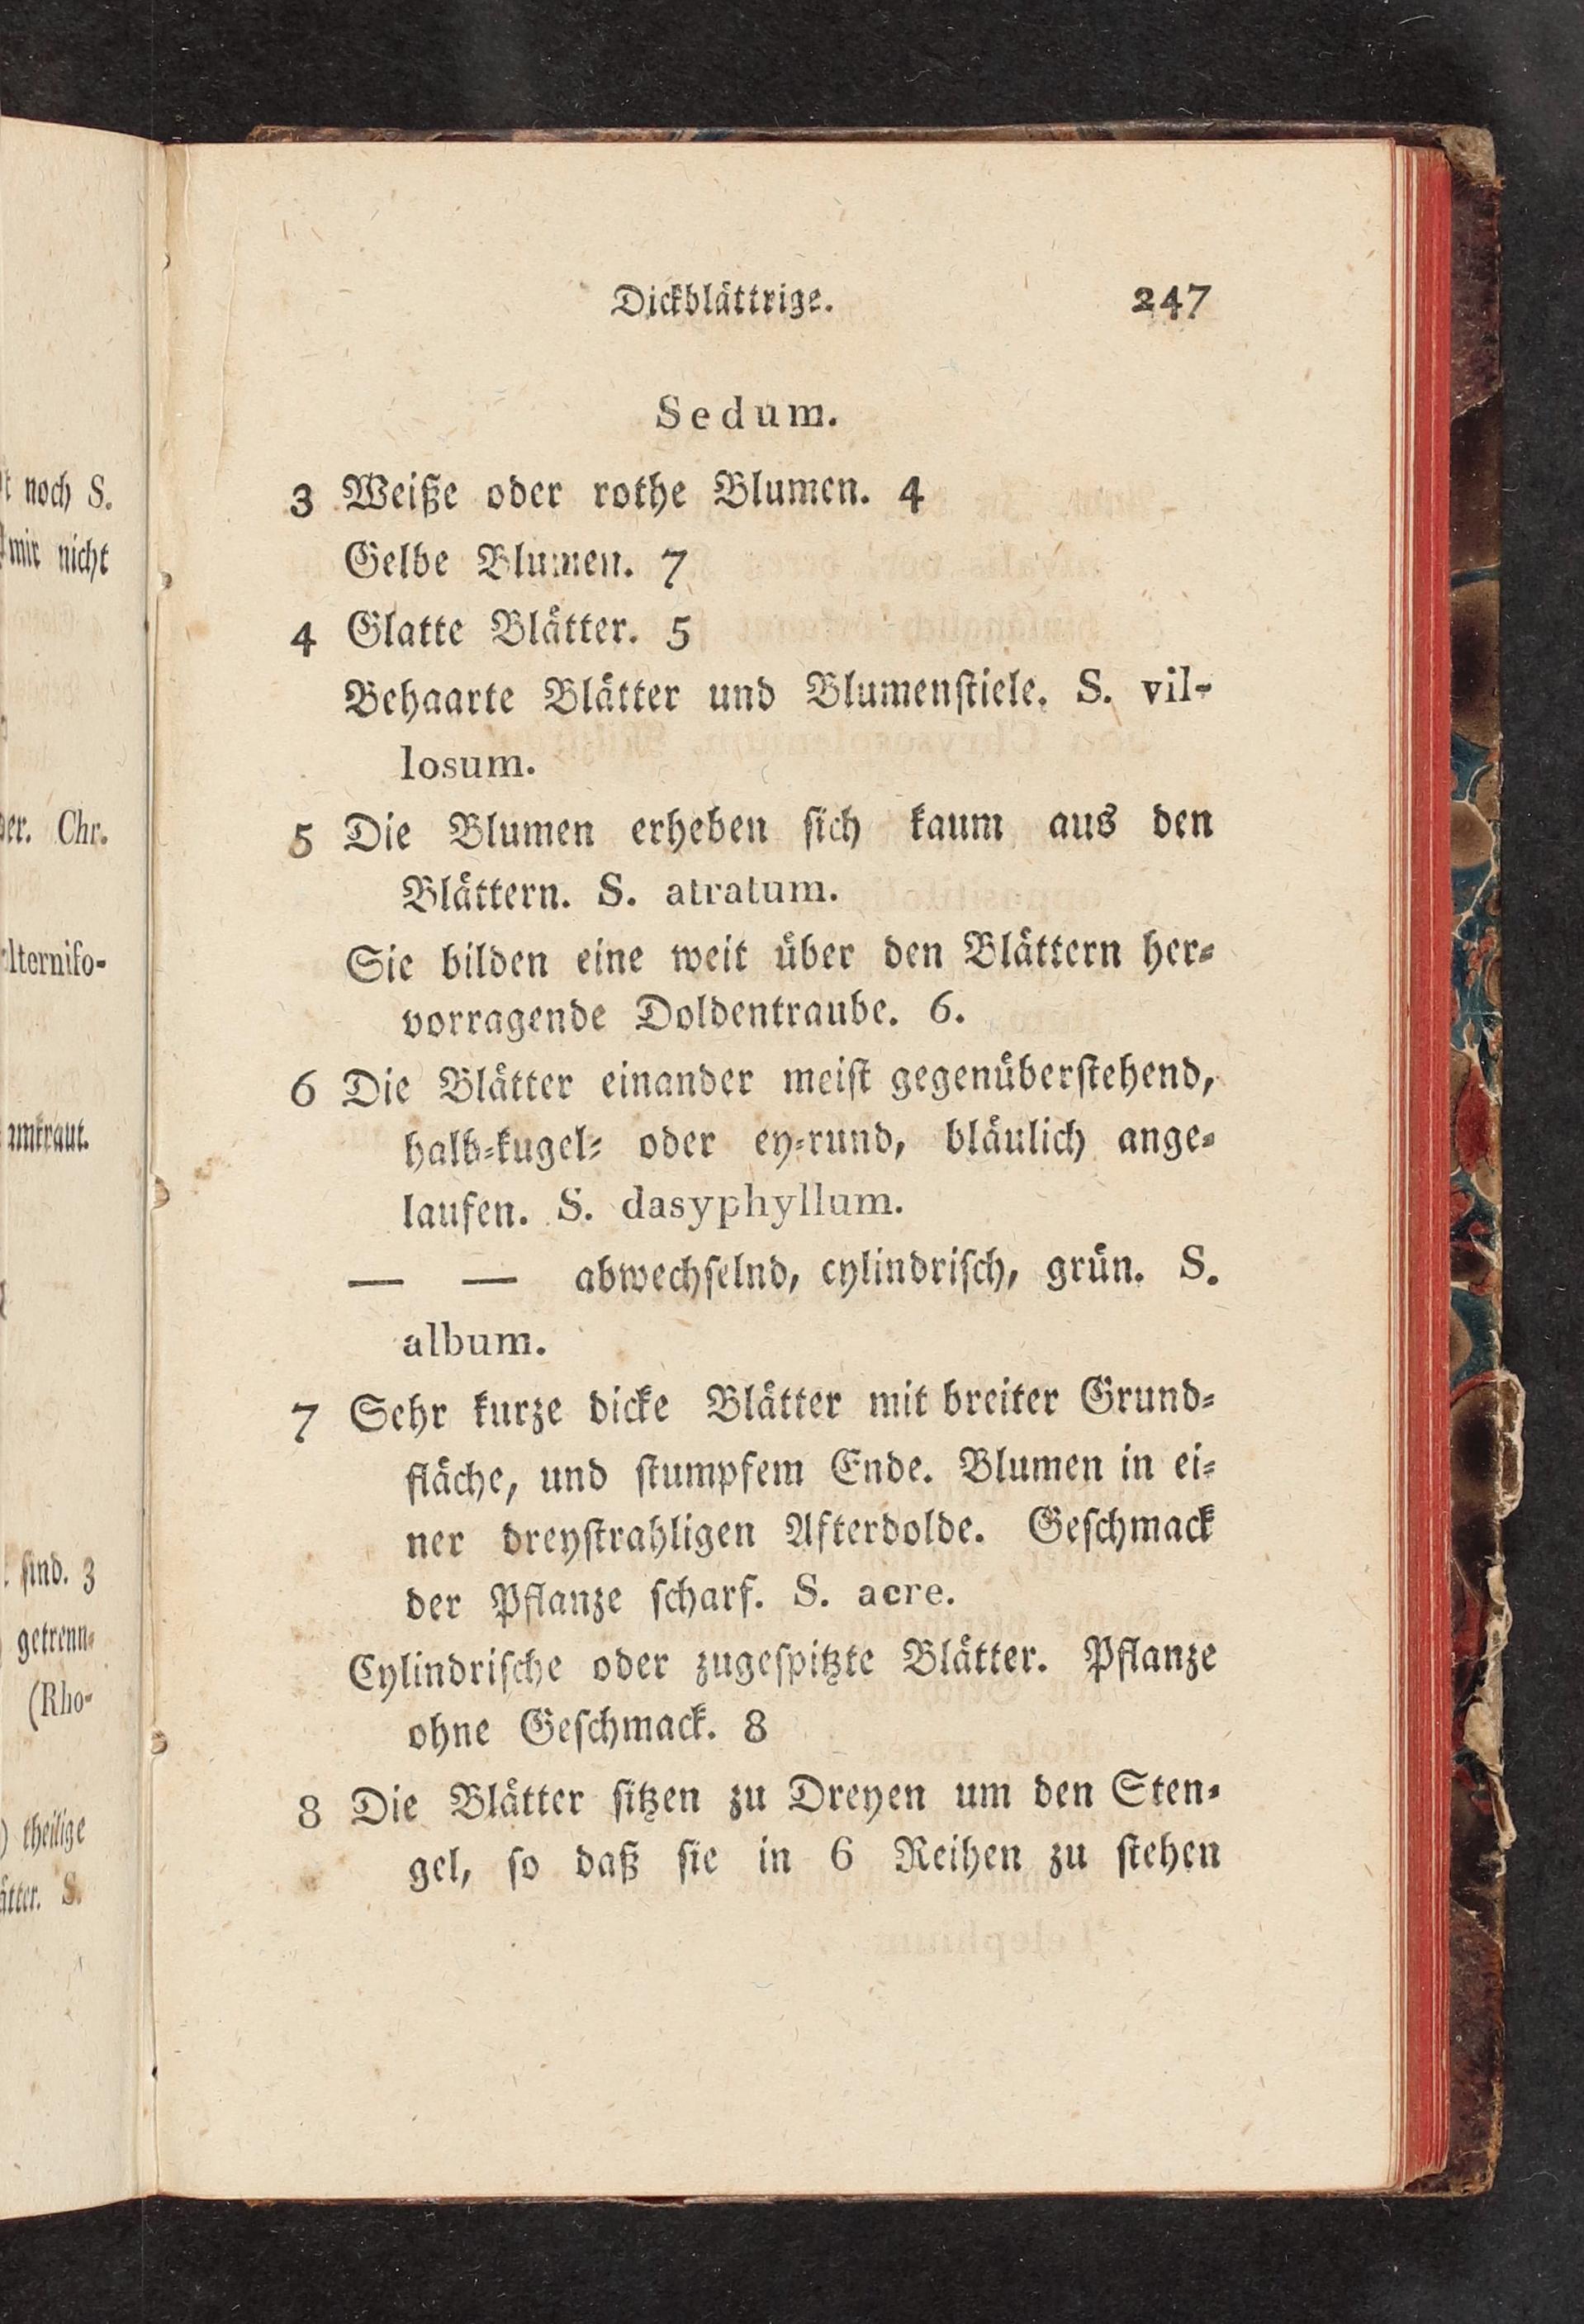 t noch S.
mir nicht
er. Chr.
lternifo-
amkraut.
sind. 3
getrenn-
(Rho-
theilige
ätter. S.
Dickblättrige. 247
Sedum.
3 Weiße oder rothe Blumen. 4
Gelbe Blumen. 7
4 Glatte Blätter. 5
Behaarte Blätter und Blumenſtiele. S. vil-
losum.
5 Die Blumen erheben ſich kaum aus den
Blättern. S. atratum.
Sie bilden eine weit über den Blättern her-
vorragende Doldentraube. 6.
6 Die Blätter einander meiſt gegenüberſtehend,
halb-kugel- oder ey-rund, bläulich ange-
laufen. S. dasyphyllum.
— — abwechſelnd, cylindriſch, grün. S.
album.
7 Sehr kurze dicke Blätter mit breiter Grund-
fläche, und ſtumpfem Ende. Blumen in ei-
ner dreyſtrahligen Afterdolde. Geſchmack
der Pflanze ſcharf. S. acre.
Cylindriſche oder zugeſpitzte Blätter. Pflanze
ohne Geſchmack. 8
8 Die Blätter ſitzen zu Dreyen um den Sten-
gel, ſo daß ſie in 6 Reihen zu ſtehen